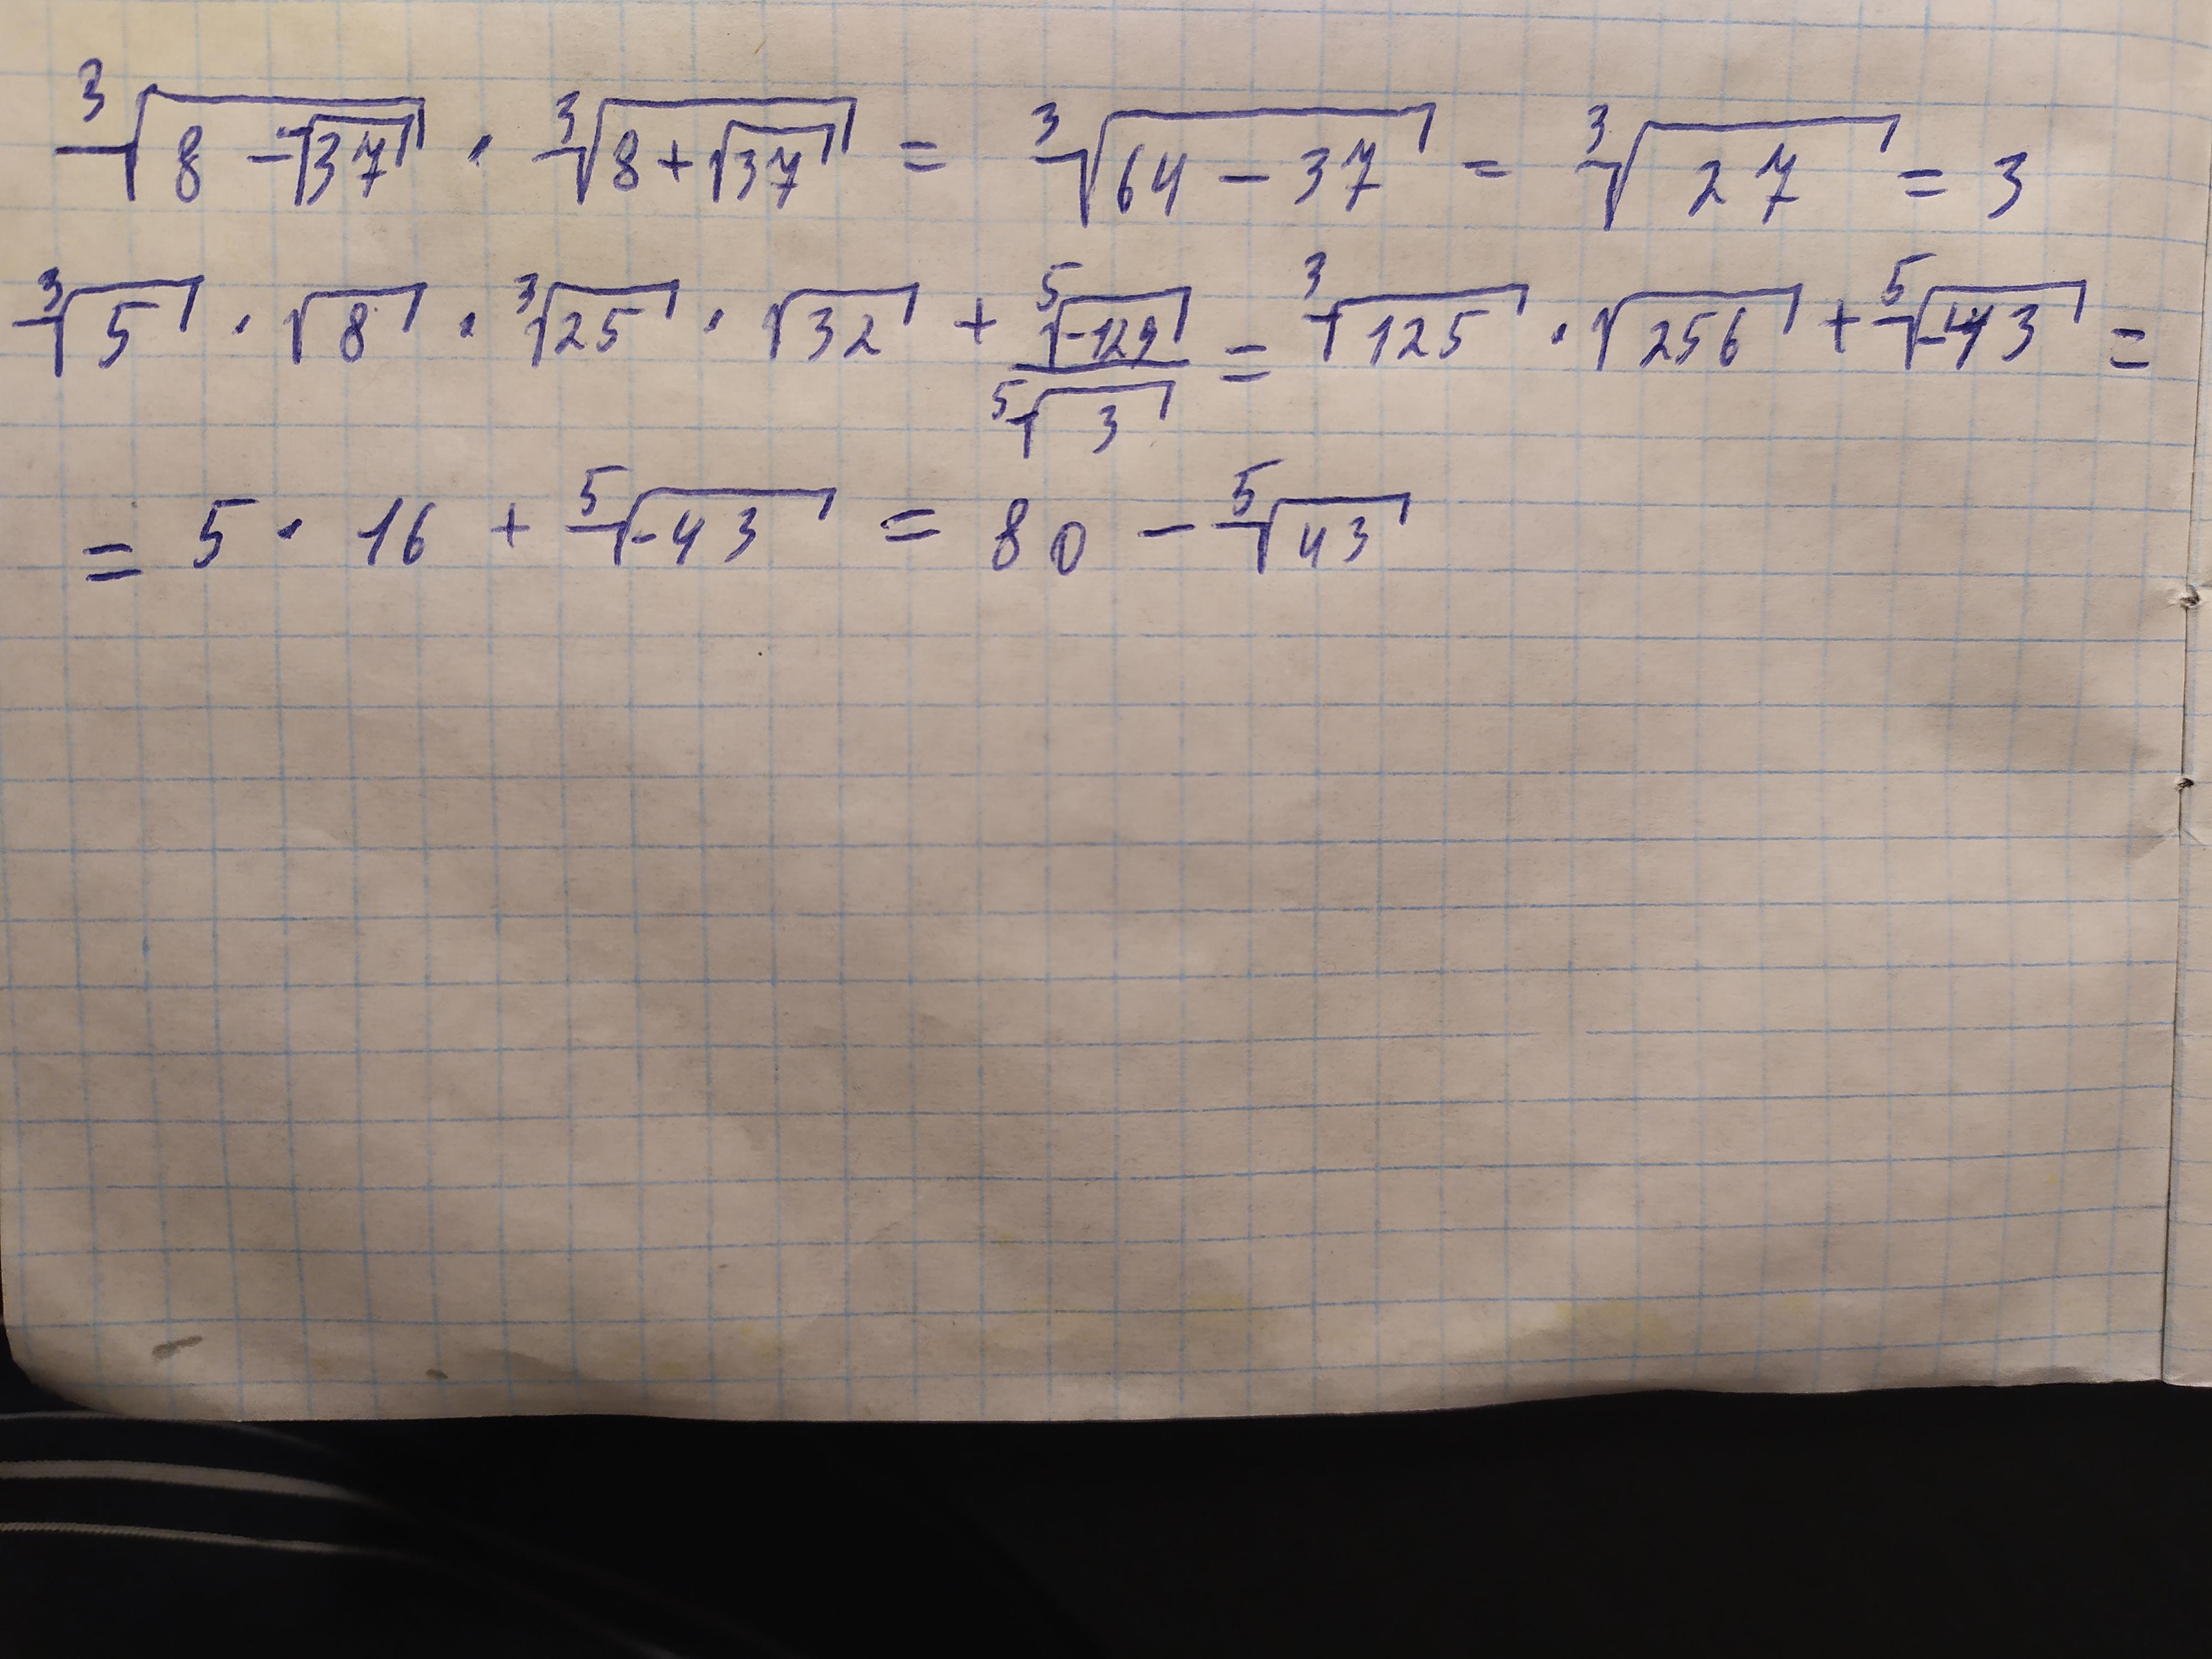 ∛(8 − √37) · ∛(8 + √37) = ∛(64 − 37) = ∛27 = 3
∛5 · √8 · ∛25 · √32 + ⁵√(−129) / ⁵√3 = ∛125 · √256 + ⁵√(−43) =
= 5 · 16 + ⁵√(−43) = 80 − ⁵√43